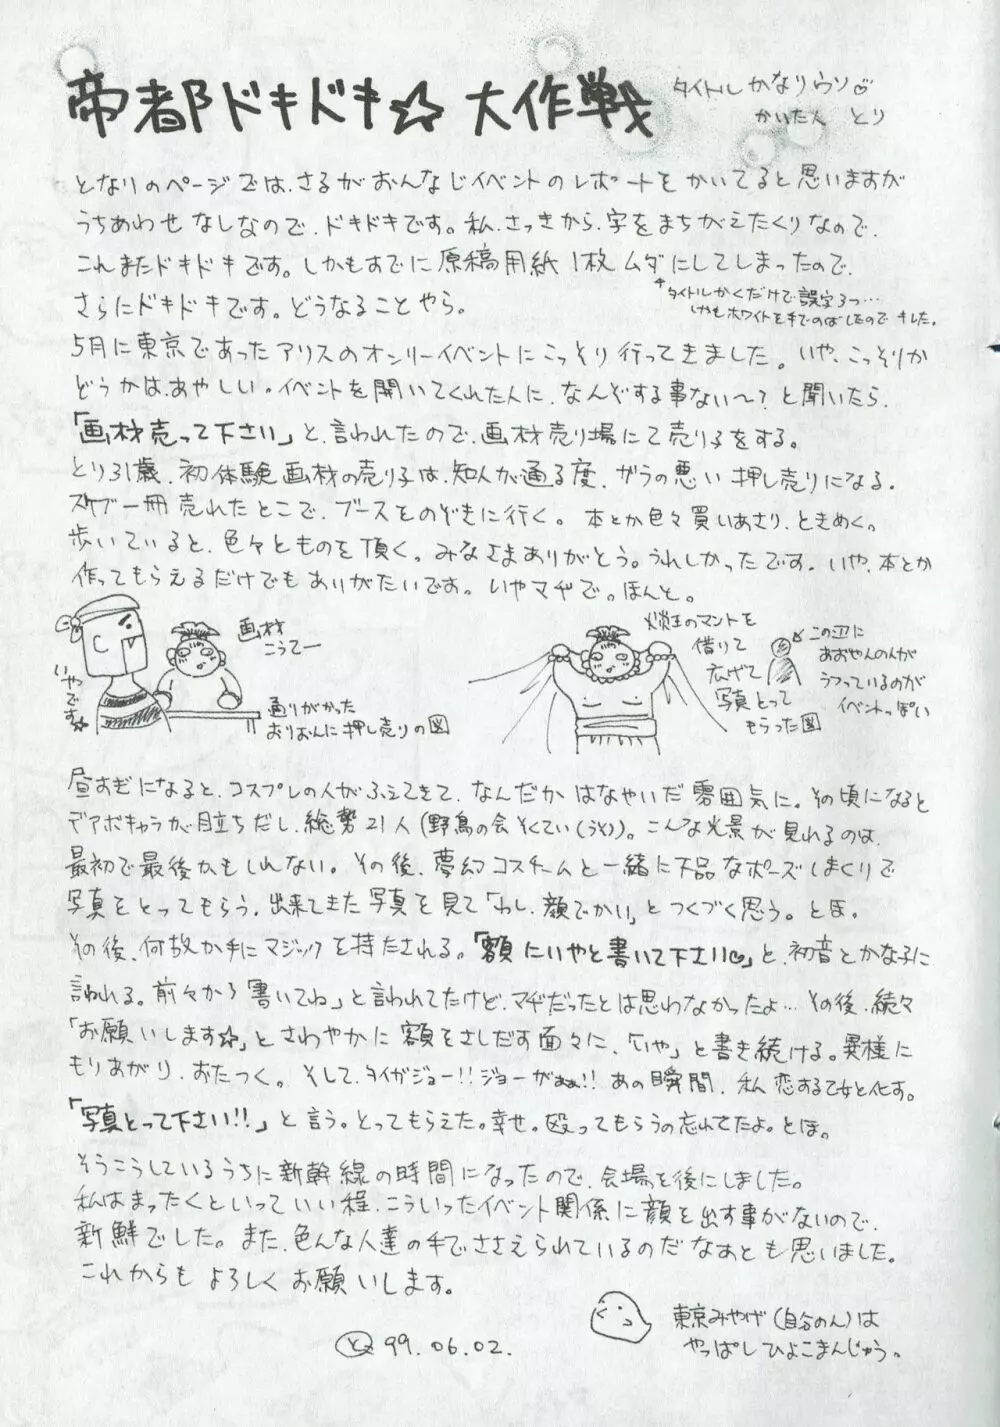 帝都ドキドキ☆大作戦
タイトルかなりウソ♡
かいた人 とり
となりのページでは、さるがおんなじイベントのレポートをかいてると思いますが
うちあわせなしなので、ドキドキです。私、さっきから、字をまちがえたくりなので、
これまたドキドキです。しかもすでに原稿用紙1枚ムダにしてしまったので、
さらにドキドキです。どうなることやら。
↑タイトルかくだけで誤字3つ…
しかもホワイトを手でのばしたのでキレた。
5月に東京であったアリスのオンリーイベントにこっそり行ってきました。いや、こっそりか
どうかは、あやしい。イベントを開いてくれた人に、なんぞする事ない〜?と聞いたら、
「画材売って下さい」と、言われたので、画材売り場にて売り子をする。
とり31歳、初体験画材の売り子は、知人が通る度、ガラの悪い押し売りになる。
スケブ一冊売れたとこで、ブースをのぞきに行く。本とか色々買いあさり、ときめく。
歩いていると、色々とものを頂く。みなさまありがとう。うれしかったです。いや、本とか
作ってもらえるだけでもありがたいです。いやマヂで。ほんと。
いやです☆
画材
こうてー
通りがかった
おりおんに押し売りの図
炎王のマントを
借りて
広げて
写真とって
もらった図
この辺に
あおやんの人が
うつっているのが
イベントっぽい
昼すぎになると、コスプレの人がふえてきて、なんだかはなやいだ雰囲気に。その頃になると
デアボキャラが目立ちだし、総勢21人(野鳥の会そくてい(うそ))。こんな光景が見れるのは、
最初で最後かもしれない。その後、夢幻コスチームと一緒に下品なポーズしまくりで
写真をとってもらう。出来てきた写真を見て「わし、顔でかい」とつくづく思う。とほ。
その後、何故か手にマジックを持たされる。「額にいやと書いて下さい♡」と、初音とかな子に
言われる。前々から「書いてね」と言われてたけど、マヂだったとは思わなかったよ… その後、続々
「お願いします☆」とさわやかに額をさしだす面々に、「いや」と書き続ける。異様に
もりあがり、おたつく。そして、タイガジョー!!ジョーがぁぁ!!あの瞬間、私恋する乙女と化す。
「写真とって下さい!!」と言う。とってもらえた。幸せ。殴ってもらうの忘れてたよ。とほ。
そうこうしているうちに新幹線の時間になったので、会場を後にしました。
私はまったくといっていい程、こういったイベント関係に顔を出す事がないので、
新鮮でした。また、色んな人達の手でささえられているのだなぁとも思いました。
これからもよろしくお願いします。
と 99.06.02.
東京みやげ(自分のん)は
やっぱしひよこまんじゅう。